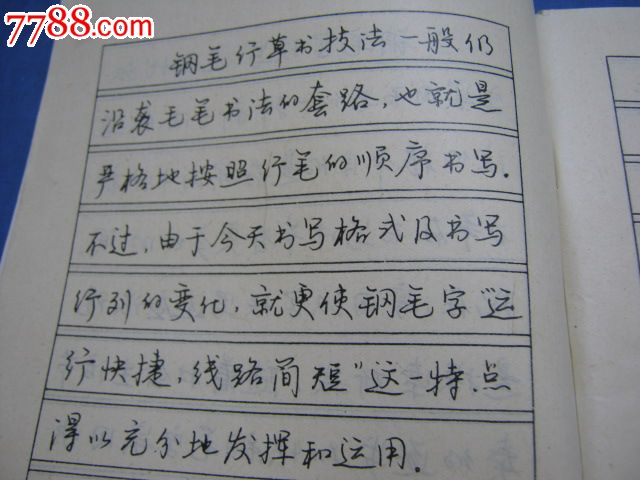 7788.com
钢笔行草书技法一般仍
沿袭毛笔书法的套路,也就是
严格地按照行笔的顺序书写.
不过,由于今天书写格式及书写
行列的变化,就更使钢笔字“运
行快捷,线路简短”这一特点
得以充分地发挥和运用.